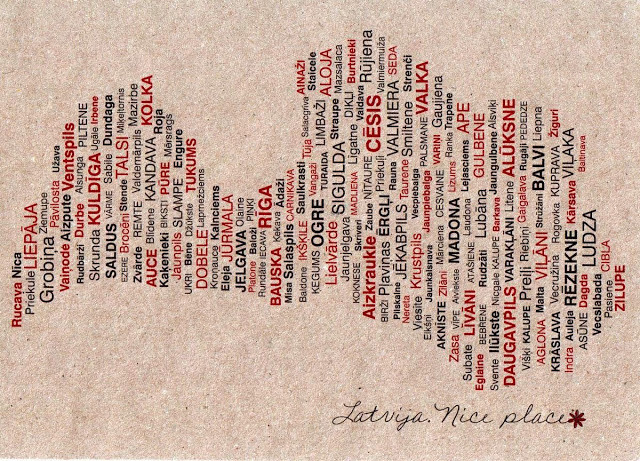 Rucava Nica
Priekule LIEPĀJA
Grobiņa Ziemupe
Vaiņode Aizpute Pāvilosta Užava
Rudbārži Durbe Alsunga Ventspils PILTENE
Skrunda KULDĪGA Ugāle Irbene
SALDUS VĀRME Sabile Dundaga
EZERE Brocēni Stende TALSI Miķeļtornis
Zvārde REMTE Valdemārpils Mazirbe
AUCE Blīdene KANDAVA KOLKA
Kaķenieki BIKSTI PŪRE Mērsrags Roja
Jaunpils SLAMPE Engure
UKRI Bēne Džūkste TUKUMS
DOBELE Lapmežciems
Kronauce Kalnciems
Eleja JŪRMALA
JELGAVA Olaine
Platone Dalbiņi PIŅĶI
Rundāle IECAVA RĪGA
BAUSKA Ķekava Ādaži
Misa Salaspils CARNIKAVA
Baldone IKŠĶILE Saulkrasti Tūja AINAŽI
ĶEGUMS OGRE Vangaži Salacgrīva Staicele
Lielvārde SIGULDA TURAIDA LIMBAŽI ALOJA
Jaunjelgava Straupe Mazsalaca
KOKNESE Skrīveri MADLIENA Līgatne DIKĻI Burtnieki
Aizkraukle Zaube NĪTAURE CĒSIS Valdava Rūjiena
BIRŽI Pļaviņas ĒRGĻI Priekuļi VALMIERA Valmiermuiža
JĒKABPILS Taurene Rauna SEDA
Viesīte Krustpils Vespiebalga Smiltene Strenči
Elkšņi Jaunkalsnava Jaunpiebalga PALSMANE VALKA
AKNĪSTE Zīlāni Mārciena CESVAINE VARIŅI Gaujiena
Zasa VĪPE Aiviekste MADONA Lizums Ranka Trapene
Subate LĪVĀNI ATAŠIENE Ļaudona Lejasciems APE
Eglaine BEBRENE Rudzāti Lubāna GULBENE
Svente Ilūkste Nīcgale KALUPE Barkava Jaungulbene Alsviķi
DAUGAVPILS VARAKĻĀNI Litene ALŪKSNE
Višķi KALUPE Preiļi Riebiņi Gaigalava Rugāji PEDEDZE
AGLONA Malta VIĻĀNI Strūžāni BALVI Liepna
KRĀSLAVA Vecružina Rogovka KUPRAVA Žīguri
Indra Auleja RĒZEKNE Kārsava VIĻAKA
ASŪNE Dagda LUDZA Baltinava
Vecslabada
Pasiene CIBLA
ZILUPE
Latvija. Nice place*